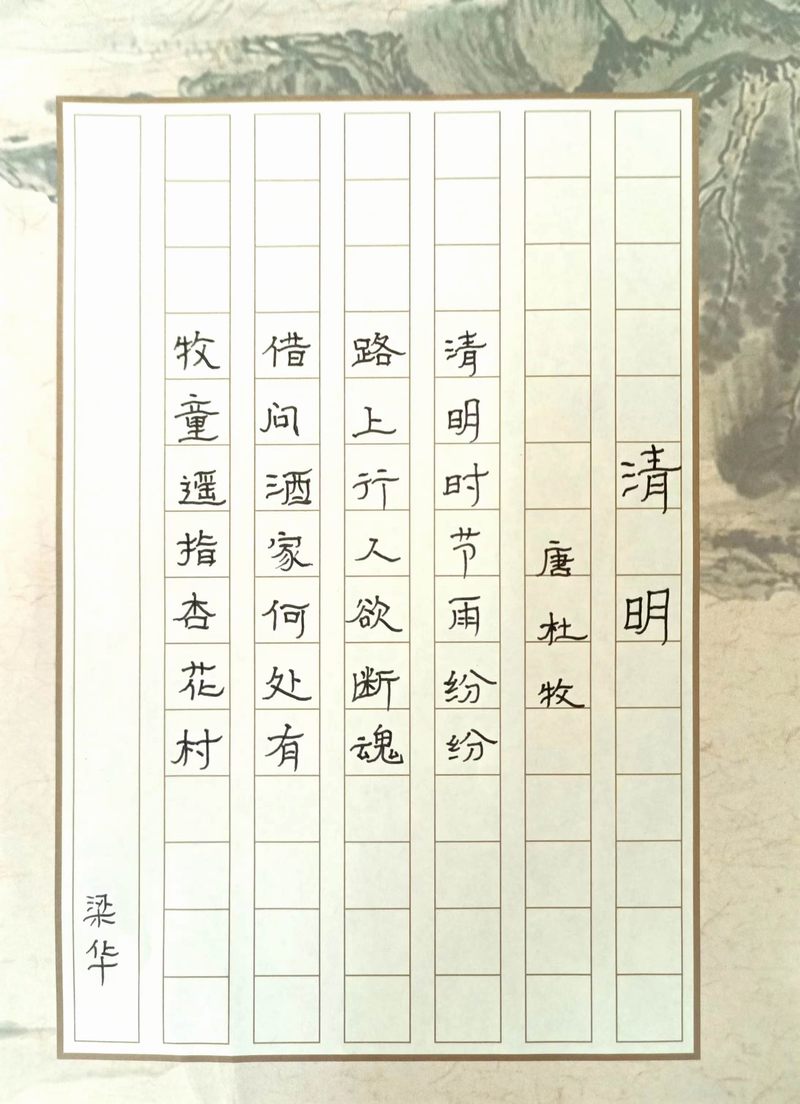 清明
唐杜牧
清明时节雨纷纷
路上行人欲断魂
借问酒家何处有
牧童遥指杏花村
梁华